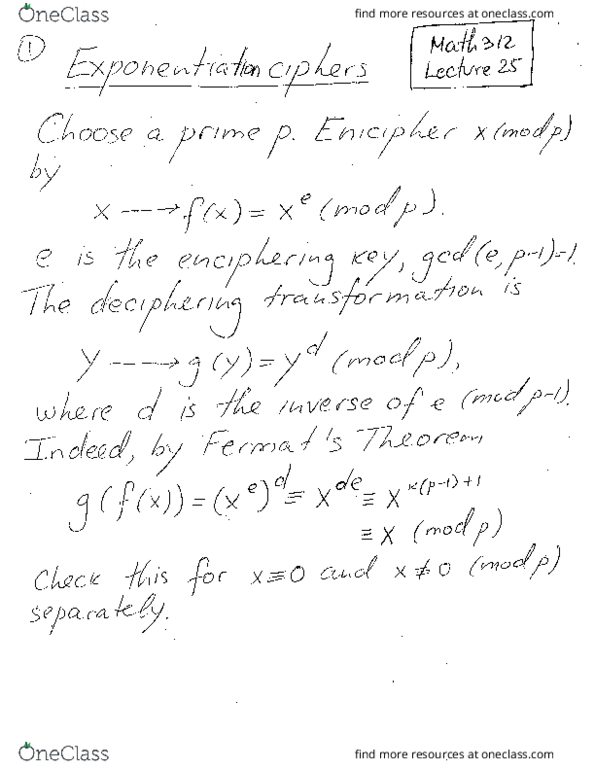 OneClass
find more resources at oneclass.com
①
Math 312
Lecture 25
Exponentiation ciphers
Choose a prime p. Enicipher x (mod p)
by
x ---→ f(x) = x^e (mod p).
e is the enciphering key, gcd (e, p-1)=1.
The deciphering transformation is
y ---→ g(y) = y^d (mod p),
where d is the inverse of e (mod p-1).
Indeed, by Fermat's Theorem,
g(f(x)) = (x^e)^d ≡ x^de ≡ x^k(p-1)+1
≡ x (mod p)
Check this for x≡0 and x≢0 (mod p)
separately.
OneClass
find more resources at oneclass.com